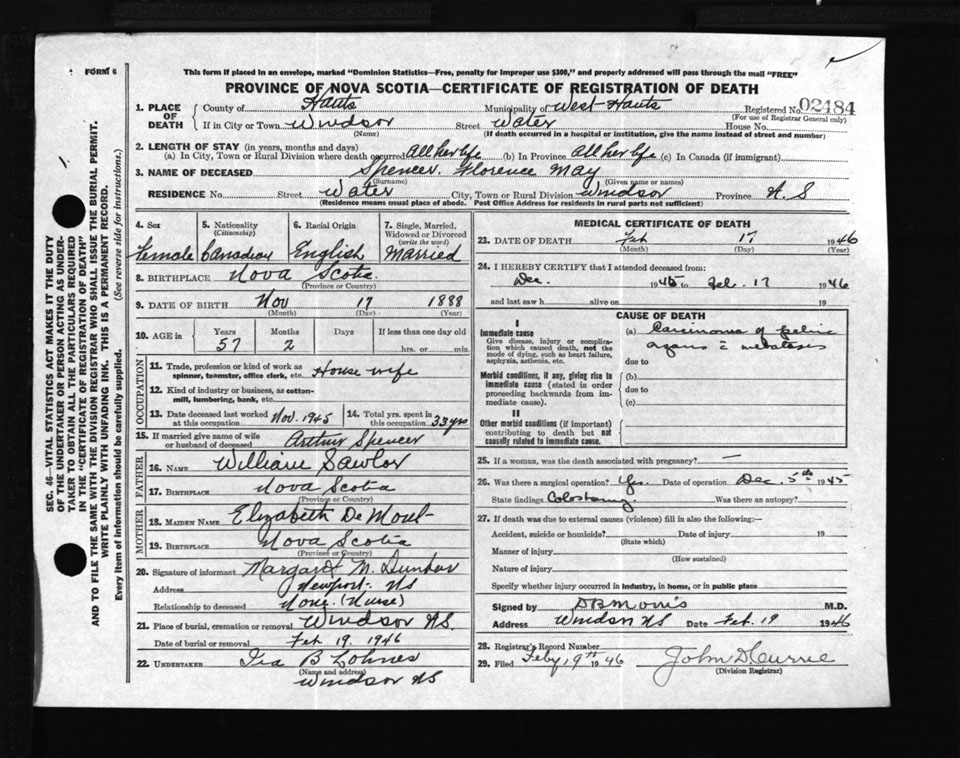 FORM 6
This form if placed in an envelope, marked "Dominion Statistics—Free, penalty for improper use $300," and properly addressed will pass through the mail "FREE"
PROVINCE OF NOVA SCOTIA—CERTIFICATE OF REGISTRATION OF DEATH
1. PLACE OF DEATH
County of Hants Municipality of West-Hants Registered No. 02484
(For use of Registrar General only)
If in City or Town Windsor Street Water House No.
(Name) (If death occurred in a hospital or institution, give the name instead of street and number)
2. LENGTH OF STAY (in years, months and days)
(a) In City, Town or Rural Division where death occurred All her life (b) In Province All her life (c) In Canada (if immigrant)
3. NAME OF DECEASED Spencer. Florence May
(Surname) (Given name or names)
RESIDENCE No. Street Water City, Town or Rural Division Windsor Province N. S
(Residence means usual place of abode. Post Office Address for residents in rural parts not sufficient)
4. Sex
Female
5. Nationality
(Citizenship)
Canadian
6. Racial Origin
English
7. Single, Married, Widowed or Divorced
(write the word)
Married
8. BIRTHPLACE Nova Scotia
(Province or Country)
9. DATE OF BIRTH Nov 17 1888
(Month) (Day) (Year)
10. AGE in
Years Months Days If less than one day old
57 2 hrs. or min.
OCCUPATION
11. Trade, profession or kind of work as spinner, teamster, office clerk, etc. House wife
12. Kind of industry or business, as cotton-mill, lumbering, bank, etc.
13. Date deceased last worked at this occupation Nov. 1945
14. Total yrs. spent in this occupation 33 yrs
15. If married give name of wife or husband of deceased Arthur Spencer
FATHER
16. NAME William Sawlor
17. BIRTHPLACE Nova Scotia
(Province or Country)
MOTHER
18. MAIDEN NAME Elizabeth De Mont
19. BIRTHPLACE Nova Scotia
(Province or Country)
20. Signature of informant Margaret M. Dunbar
Address Newport. NS
Relationship to deceased None. (Nurse)
21. Place of burial, cremation or removal Windsor N.S.
Date of burial or removal Feb 19. 1946
22. UNDERTAKER Ira B Lohnes
(Name and address)
Windsor NS
MEDICAL CERTIFICATE OF DEATH
23. DATE OF DEATH Feb 17 1946
(Month) (Day) (Year)
24. I HEREBY CERTIFY that I attended deceased from:
Dec. 1945 to Feb. 17 1946
and last saw h alive on 19
CAUSE OF DEATH
I
Immediate cause
Give disease, injury or complication which caused death, not the mode of dying, such as heart failure, asphyxia, asthenia, etc.
(a) Carcinoma of pelvic
due to
Morbid conditions, if any, giving rise to immediate cause (stated in order proceeding backwards from immediate cause).
(b)
due to
(c)
II
Other morbid conditions (if important) contributing to death but not causally related to immediate cause.
25. If a woman, was the death associated with pregnancy? —
26. Was there a surgical operation? Yes. Date of operation Dec. 5th 1945
State findings Colostomy. Was there an autopsy?
27. If death was due to external causes (violence) fill in also the following:—
Accident, suicide or homicide? Date of injury 19
(State which)
Manner of injury
(How sustained)
Nature of injury
Specify whether injury occurred in industry, in home, or in public place
Signed by D B Morris M.D.
Address Windsor NS Date Feb. 19 1946
28. Registrar's Record Number
29. Filed Feby 19th 1946 John D Currie
(Division Registrar)
SEC. 46—VITAL STATISTICS ACT MAKES IT THE DUTY
OF THE UNDERTAKER OR PERSON ACTING AS UNDER-
TAKER TO OBTAIN ALL THE PARTICULARS REQUIRED
IN THE "CERTIFICATE OF REGISTRATION OF DEATH"
AND TO FILE THE SAME WITH THE DIVISION REGISTRAR WHO SHALL ISSUE THE BURIAL PERMIT.
WRITE PLAINLY WITH UNFADING INK. THIS IS A PERMANENT RECORD.
Every item of information should be carefully supplied. (See reverse side for instructions.)